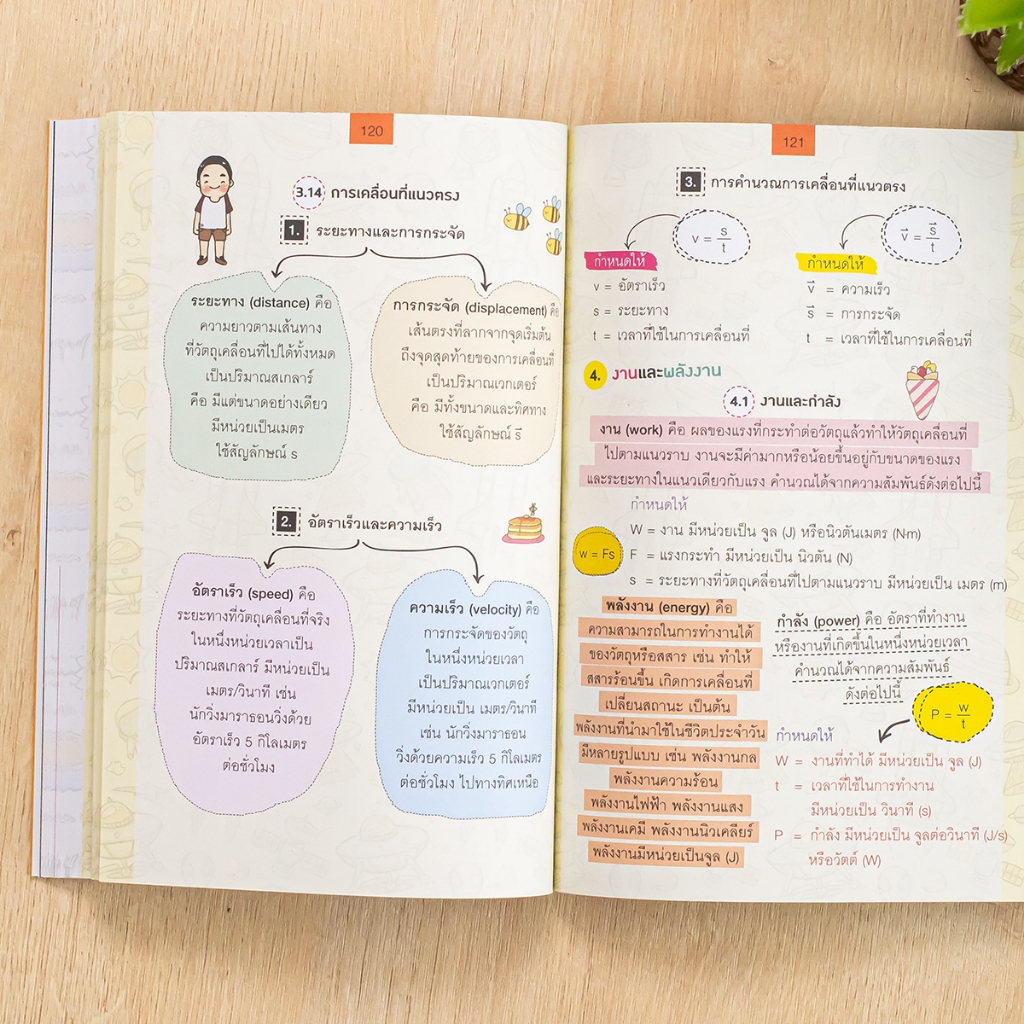 120
3.14 การเคลื่อนที่แนวตรง
1. ระยะทางและการกระจัด
ระยะทาง (distance) คือ
ความยาวตามเส้นทาง
ที่วัตถุเคลื่อนที่ไปได้ทั้งหมด
เป็นปริมาณสเกลาร์
คือ มีแต่ขนาดอย่างเดียว
มีหน่วยเป็นเมตร
ใช้สัญลักษณ์ s
การกระจัด (displacement) คือ
เส้นตรงที่ลากจากจุดเริ่มต้น
ถึงจุดสุดท้ายของการเคลื่อนที่
เป็นปริมาณเวกเตอร์
คือ มีทั้งขนาดและทิศทาง
ใช้สัญลักษณ์ s⃗
2. อัตราเร็วและความเร็ว
อัตราเร็ว (speed) คือ
ระยะทางที่วัตถุเคลื่อนที่จริง
ในหนึ่งหน่วยเวลาเป็น
ปริมาณสเกลาร์ มีหน่วยเป็น
เมตร/วินาที เช่น
นักวิ่งมาราธอนวิ่งด้วย
อัตราเร็ว 5 กิโลเมตร
ต่อชั่วโมง
ความเร็ว (velocity) คือ
การกระจัดของวัตถุ
ในหนึ่งหน่วยเวลา
เป็นปริมาณเวกเตอร์
มีหน่วยเป็น เมตร/วินาที
เช่น นักวิ่งมาราธอน
วิ่งด้วยความเร็ว 5 กิโลเมตร
ต่อชั่วโมง ไปทางทิศเหนือ
121
3. การคำนวณการเคลื่อนที่แนวตรง
v = s/t
กำหนดให้
v = อัตราเร็ว
s = ระยะทาง
t = เวลาที่ใช้ในการเคลื่อนที่
v⃗ = s⃗/t
กำหนดให้
v⃗ = ความเร็ว
s⃗ = การกระจัด
t = เวลาที่ใช้ในการเคลื่อนที่
4. งานและพลังงาน
4.1 งานและกำลัง
งาน (work) คือ ผลของแรงที่กระทำต่อวัตถุแล้วทำให้วัตถุเคลื่อนที่
ไปตามแนวราบ งานจะมีค่ามากหรือน้อยขึ้นอยู่กับขนาดของแรง
และระยะทางในแนวเดียวกับแรง คำนวณได้จากความสัมพันธ์ดังต่อไปนี้
กำหนดให้
w = Fs
W = งาน มีหน่วยเป็น จูล (J) หรือนิวตันเมตร (N·m)
F = แรงกระทำ มีหน่วยเป็น นิวตัน (N)
s = ระยะทางที่วัตถุเคลื่อนที่ไปตามแนวราบ มีหน่วยเป็น เมตร (m)
พลังงาน (energy) คือ
ความสามารถในการทำงานได้
ของวัตถุหรือสสาร เช่น ทำให้
สสารร้อนขึ้น เกิดการเคลื่อนที่
เปลี่ยนสถานะ เป็นต้น
พลังงานที่นำมาใช้ในชีวิตประจำวัน
มีหลายรูปแบบ เช่น พลังงานกล
พลังงานความร้อน
พลังงานไฟฟ้า พลังงานแสง
พลังงานเคมี พลังงานนิวเคลียร์
พลังงานมีหน่วยเป็นจูล (J)
กำลัง (power) คือ อัตราที่ทำงาน
หรืองานที่เกิดขึ้นในหนึ่งหน่วยเวลา
คำนวณได้จากความสัมพันธ์
ดังต่อไปนี้
P = w/t
กำหนดให้
W = งานที่ทำได้ มีหน่วยเป็น จูล (J)
t = เวลาที่ใช้ในการทำงาน
มีหน่วยเป็น วินาที (s)
P = กำลัง มีหน่วยเป็น จูลต่อวินาที (J/s)
หรือวัตต์ (W)